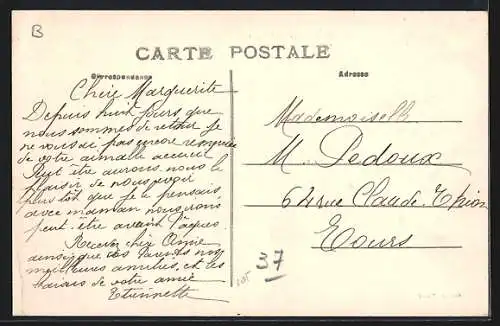 B
CARTE POSTALE
Correspondance
Adresse
Chère Marguerite
Depuis huit jours que
nous sommes de retour je
ne vous ai pas encore remerciée
de votre aimable accueil
Peut être aurons nous le
plaisir de nous voir
plus tôt que je le pensais
avec maman nous irons
peut-être avant Pâques.
Recevez chère Amie
ainsi que vos Parents nos
meilleures amitiés, et les
baisers de votre amie
Etiennette
Mademoiselle
M. Pedoux
64 rue Claude
Tours
37